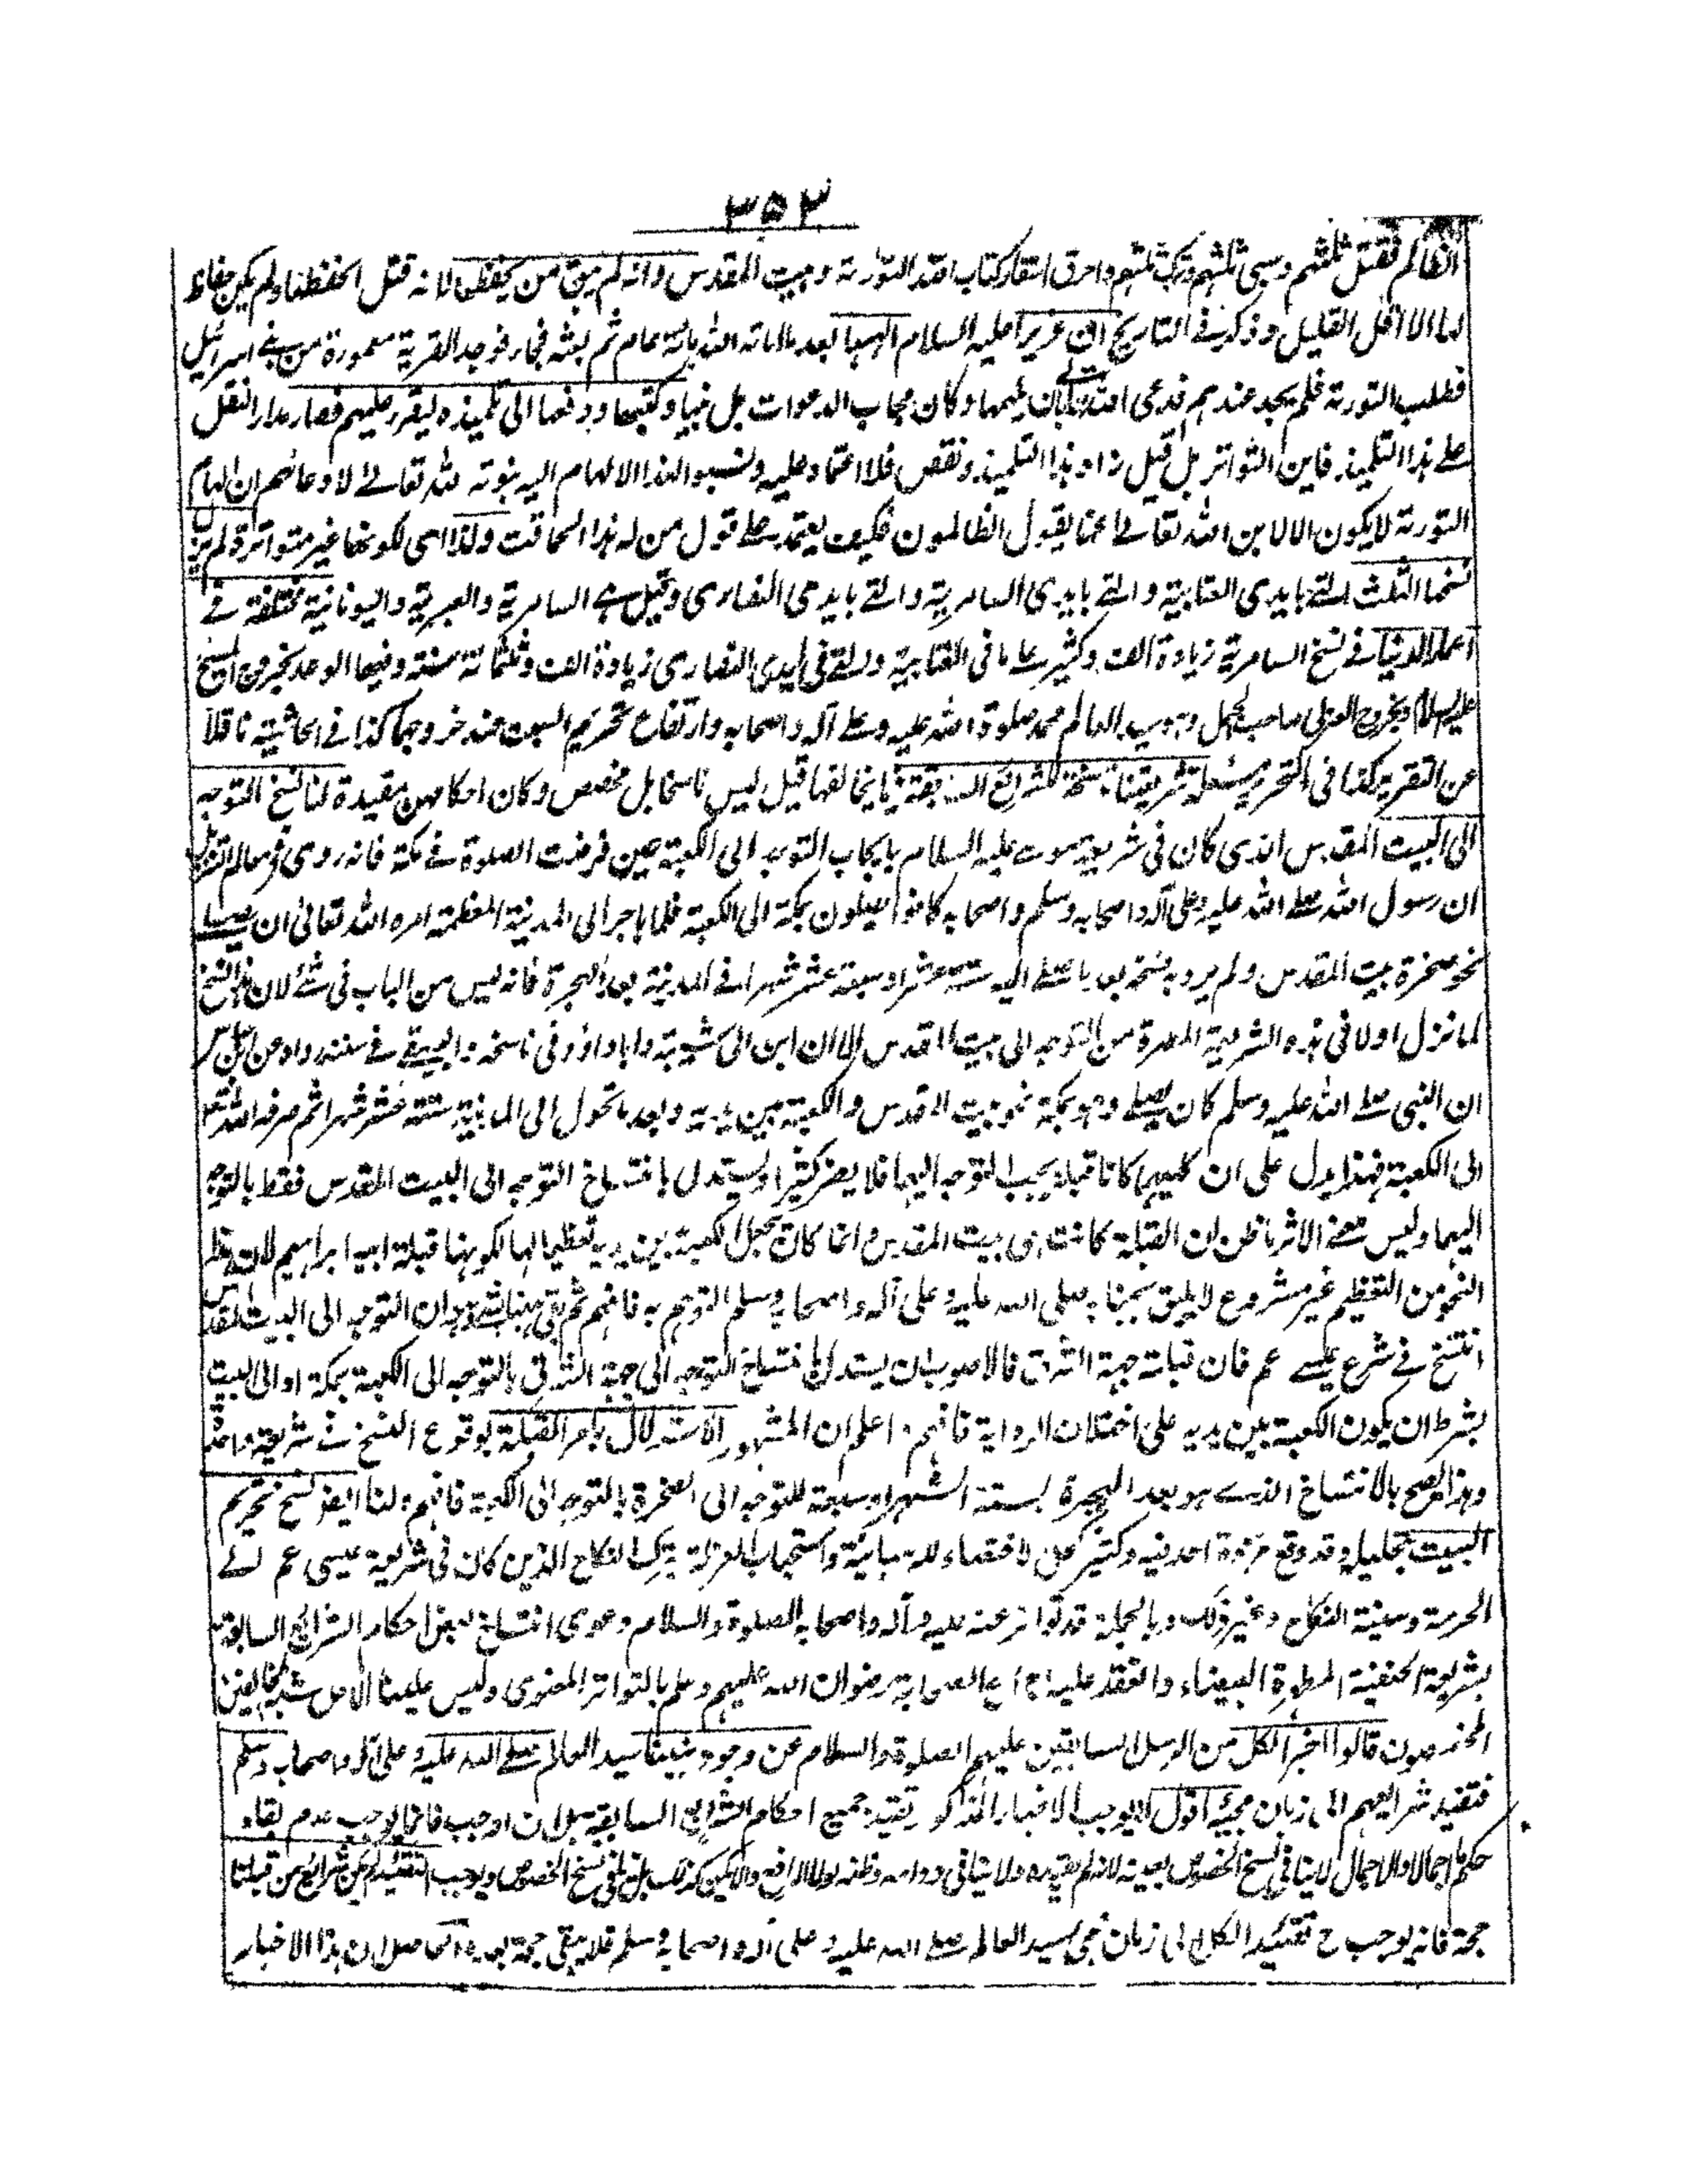 ٣٥٢
الظالم فقتل ثلثهم وسبى ثلثهم وترك ثلثهم واحرق اسفار كتاب الله التورىة وبيت المقدس وانه لم يبق من يحفظها لانه قتل الحفظة ولم يكن حفاظ
لها الا اقل القليل وذكر في التاريخ ان عزيرا عليه السلام الهمها بعد ما اماته الله مائة عام ثم بعثه فجاء فوجد القرية معمورة من بنے اسرائيل
فطلب التورىة فلم يجد عندهم فدعى الله تعالے بان يلهمها وكان مجاب الدعوات بل نبيا وكتبها ودفعها الى تلميذه ليقرء عليهم فصار مدار النقل
علے هذا التلميذ فاين التواتر بل قيل زاد هذا التلميذ ونقص فلا اعتماد عليه ونسبوا لهذا الالهام اليه بنوته لله تعالے لادعائهم ان الهام
التورىة لا يكون الا لابن الله تعالے عما يقول الظالمون فكيف يعتمد علے قول من له هذا السخافت ولذا اى لكونها غير متواترة لم يزل
نسخها الثلث التے بايدى العنانية والتے بايدى السامرية والتے بايدى النصارى وقيل هے السامرية والعبرية واليونانية مختلفة في
اعمار الدنيا في نسخ السامرية زيادة الف وكثير علے ما فى العنانية والتے فى ايدى النصارى زيادة الف وثلثمائة سنة وفيها الوعد بخروج المسيح
عليه السلام وبخروج العربى صاحب الجمل وهو سيد العالم محمد صلوة الله عليه وعلے آله واصحابه وارتفاع تحريم السبت عند خروجهما كذا في الحاشية ناقلا
عن التقرير كذا فى التحرير مسئلة شريعتنا ناسخة للشرائع السابقة فيما يخالفها قيل ليس ناسخا بل مخصص وكان احكامهن مقيدة لنا نسخ التوجه
الى البيت المقدس الذى كان فى شريعة موسے عليه السلام بايجاب التوجه الى الكعبة حين فرضت الصلوة في مكة فانه روى في معالم التنزيل
ان رسول الله صلے الله عليه وعلى آله واصحابه وسلم واصحابه كانوا يصلون بمكة الى الكعبة فلما هاجر الى المدينة المعظمة امره الله تعالى ان يصلے
نحو صخرة بيت المقدس ولم يرد به نسخه بعد ما صلے اليه ستة عشر او سبعة عشر شهرا في المدينة بعد الهجرة فانه ليس من الباب فى شئ لان هذا النسخ
لما نزل اولا فى هذه الشريعة المطهرة من التوجه الى بيت المقدس الا ان ابن ابى شيبة وابا داؤد فى ناسخه والبيهقے في سننه رواه عن ابن عباس
ان النبى صلے الله عليه وسلم كان يصلے وهو بمكة نحو بيت المقدس والكعبة بين يديه وبعد ما تحول الى المدينة ستة عشر شهرا ثم صرفه الله تعالے
الى الكعبة فهذا يدل على ان كليهما كانا قبلة يجب التوجه اليهما فلا يضر كثيرا ويستدل بانتساخ التوجه الى البيت المقدس فقط بالتوجه
اليهما وليس معنے الاثر ما ظن ان القبلة كانت هى بيت المقدس وانما كان يجعل الكعبة بين يديه تعظيما لها لكونها قبلة ابيه ابراهيم لان هذا
النحو من التعظيم غير مشروع لا يليق بجنابه صلى الله عليه وعلى آله واصحابه وسلم التوهم به فافهم ثم بقى ههنا شئ هو ان التوجه الى البيت المقدس
انتسخ في شرع عيسے عم فان قبلته جهة الشرق فالاصوب ان يستدل بانتساخ التوجه الى جهة الشرق بالتوجه الى الكعبة بمكة او الى البيت
بشرط ان يكون الكعبة بين يديه على اختلاف الرواية فافهم اعلم ان المشهور الاستدلال بامر القبلة بوقوع النسخ في شريعة واحدة
وهذا يصح بالانتساخ الذے هو بعد الهجرة لستة اشهر او سبعة للتوجه الى الصخرة بالتوجه الى الكعبة فافهم ولنا ايضا نسخ تحريم
السبت وقد وقع احد فيه وكثير واستحباب العزلة بترك النكاح الذين كان فى شريعة عيسى عم الے
الحرمة وسنية النكاح وغير ذلك وبالجملة قد تواتر عنه عليه وآله واصحابه الصلوة والسلام دعوى انتساخ بعض احكام الشرائع السابقة
بشريعة الحنفية المطهرة البيضاء وانعقد عليه اجماع الصحابة رضوان الله عليهم وعلم بالتواتر المعنوى وليس علينا الا حل شبه المخالفين
المخصصون قالوا اخبر الكل من الرسل السابقين عليهم الصلوة والسلام عن وجود نبينا سيد العالم صلے الله عليه وعلى آله واصحابه وسلم
فتقيد شرائعهم الى زمان مجيئه اقول لا يوجب الاخبار المذكور تقييد جميع احكام الشرائع السابقة بل ان اوجب فانما يوجب عدم بقاء
حكم ما اجمالا والاجمال لا ينافى نسخ المخصوص بعينه لانه لم يقيده ولا ينافى دوامه وظنه لولا الرافع والا يكن كذلك بل ينفى نسخ الخصوص ويوجب التقييد لم يكن شرائع من قبلنا
حجة فانه يوجب ح تقييد الكل الى زمان مجئ سيد العالم صلے الله عليه وعلى آله واصحابه وسلم فلا يبقى حجة بعده الحاصل ان هذا الاخبار